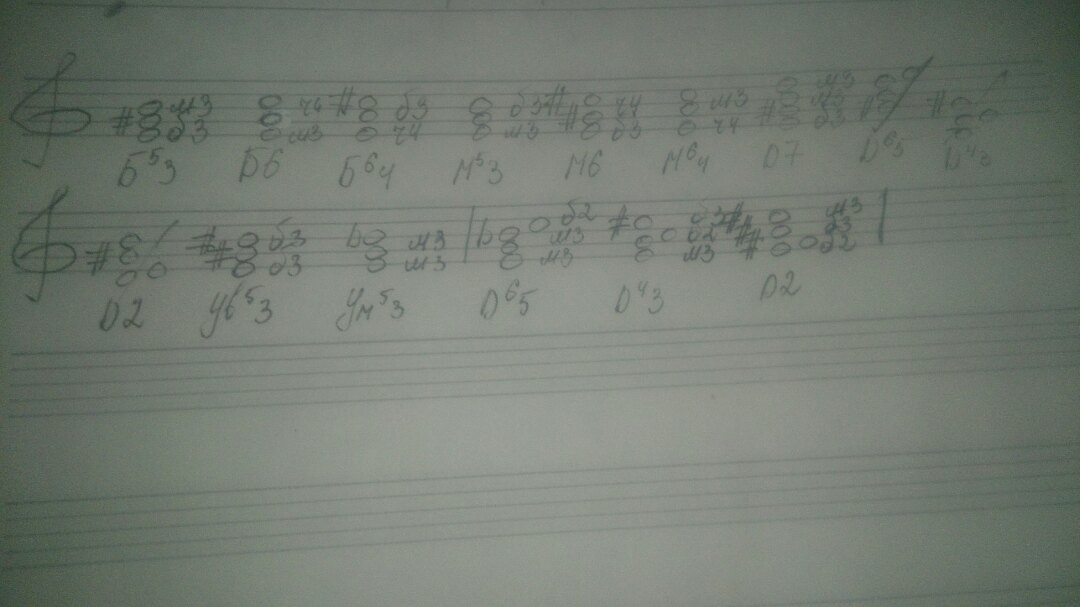 м3 ч4 б3 б3 ч4 м3 м3
б3 м3 ч4 м3 б3 ч4 м3
б3
Б⁵3 Б6 Б⁶4 М⁵3 М6 М⁶4 D7 D⁶5 D⁴3
б3 м3 б2 б3 м3
б3 м3 м3 б2 б3
м3 м3 б2
D2 Ув⁵3 Ум⁵3 D⁶5 D⁴3 D2